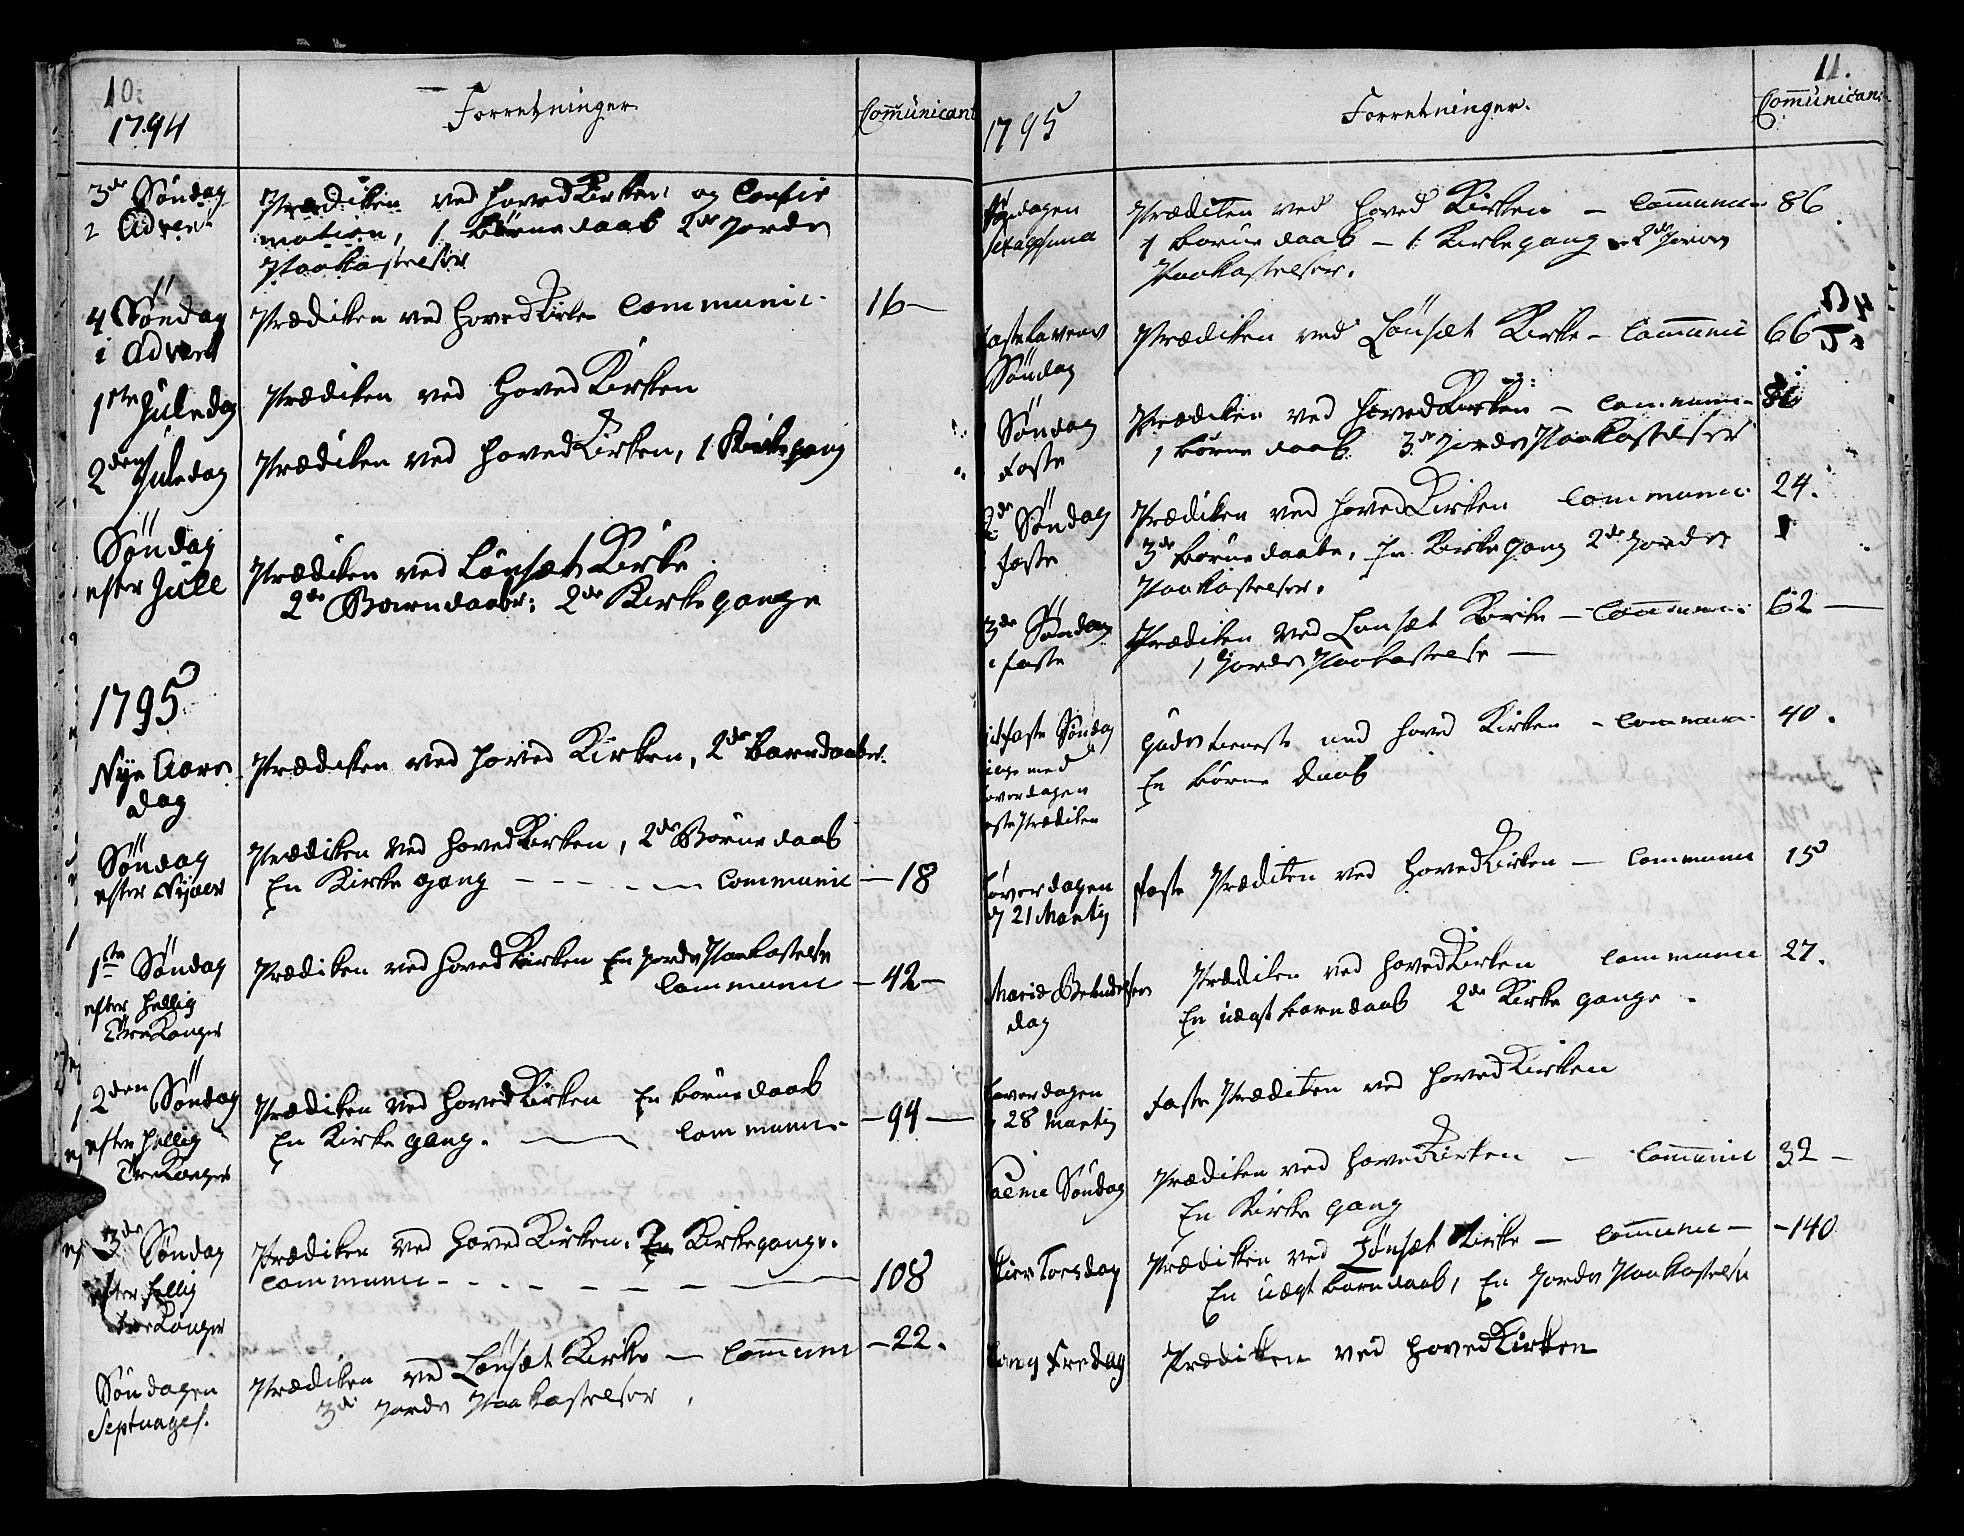 10.
1794
Forretninger.
Com̄unicant
3de Söndag
i Advent
Prædiken ved HovedKirken og Confir
mation, 1 Börnedaab 2de Jords
Paakastelser
4 Söndag
i Advent
Prædiken ved HovedKirken Communic. 16 —
1ste Juledag
Prædiken ved HovedKirken
2den Juledag
Prædiken ved HovedKirken, 1 Kirkegang
Söndag
efter Jule
Prædiken ved Lönsæt Kirke
2de Barndaaber; 2de Kirkegange
1795
Nye Aars
dag
Prædiken ved Hoved Kirken, 2de Barndaaber.
Söndag
efter Nyaar
Prædiken ved HovedKirken, 2de Börnedaab
En Kirkegang — — — Communic — 18
1ste Söndag
efter Hellig
TreKonger
Prædiken ved HovedKirken En Jords Paakastelse
Communic — 42 —
2den Söndag
efter Hellig
TreKonger
Prædiken ved HovedKirken En Börnedaab
En Kirkegang. — Communic. — 94 —
3de Söndag
efter Hellig
TreKonger
Prædiken ved HovedKirken. En Kirkegange.
Communic — — — 108
Söndagen
Septuages.
Prædiken ved Lönsæt Kirke — Com̄unic — 22.
3de Jords Paakastelser
11.
1795
Forretninger.
Com̄unican
Söndagen
Prædiken ved Hoved Kirken — Com̄unic 86
1 Börnedaab — 1. Kirkegang 2de Jords
Paakastelser.
Fastelavens
Söndag
Prædiken ved Lönsæt Kirke — Com̄unic 66
Söndag
Faste
Prædiken ved HovedKirken — Communic
1 Börnedaab 3de Jords Paakastelser
2de Söndag
i Faste
Prædiken ved HovedKirken Communic. 24.
3de Börnedaabe, En Kirkegang 2de Jords
Paakastelser.
3de Söndag
i Faste
Prædiken ved Lönsæt Kirke — Com̄unic. 62 —
1 Jords Paakastelse —
Midfaste Söndag
Gudstieneste ved Hoved Kirken — Communic. 40.
En Börne Daab
Löverdagen
Faste Prædiken
Löverdagen
d 21 Martij
Faste Prædiken ved HovedKirken — Communic 15
Mariæ Bebudelses
dag
Prædiken ved HovedKirken Communic 27.
En uægt barndaab 2de Kirkegange
Löverdagen
28 Martij
Faste Prædiken ved HovedKirken
Palme Söndag
Prædiken ved HovedKirken — Com̄unic 32 —
En Kirkegang
Skier Torsdag
Prædiken ved Lönsæt Kirke — Com̄unic — 140
En uægt barndaab, En Jords Paakastelse
Lang Fredag
Prædiken ved HovedKirken